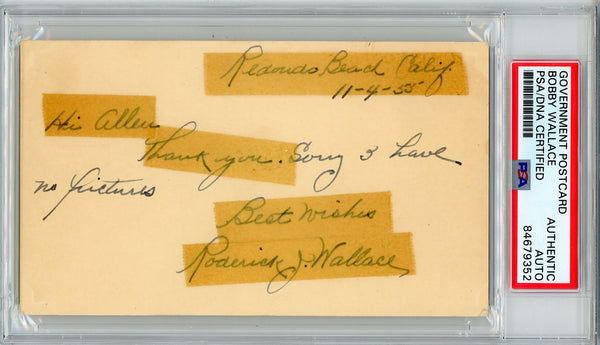 Redondo Beach Calif.
11-4-55
Hi Allen
Thank you. Sorry I have
no pictures
Best Wishes
Roderick J. Wallace
GOVERNMENT POSTCARD
BOBBY WALLACE
PSA/DNA CERTIFIED
PSA
AUTHENTIC
AUTO
84679352